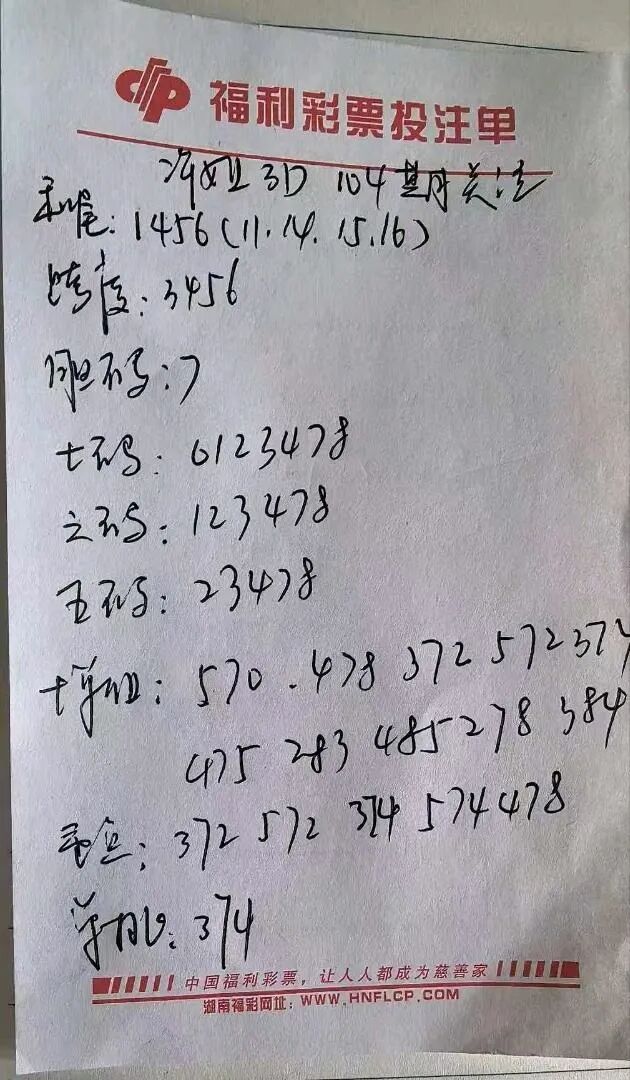 福利彩票投注单
3D 104期关注
和尾：1456(11.14.15.16)
跨度：3456
胆码：7
七码：0123478
六码：123478
五码：23478
十单组：570.478 372 572 374
475 283 485 278 384
重点：372 572 374 574 478
单挑：374
中国福利彩票，让人人都成为慈善家
湖南福彩网址：WWW.HNFLCP.COM